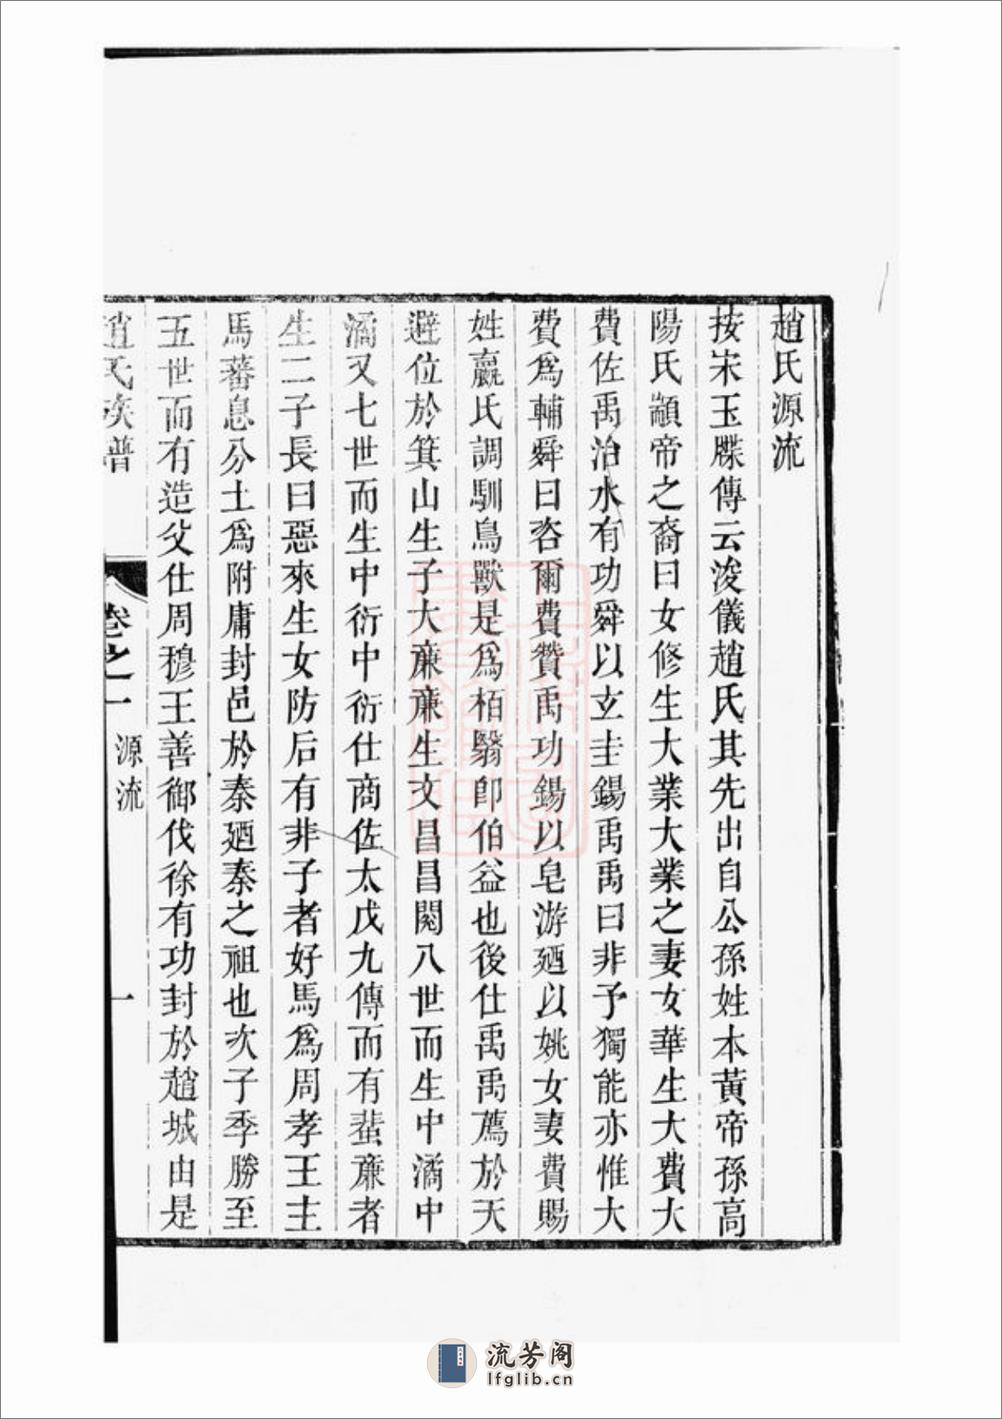 趙氏源流
按宋玉牒傳云浚儀趙氏其先出自公孫姓本黃帝孫高
陽氏顓帝之裔曰女修生大業大業之妻女華生大費大
費佐禹治水有功舜以玄圭錫禹禹曰非予獨能亦惟大
費為輔舜曰咨爾費贊禹功錫以皂游廼以姚女妻費賜
姓嬴氏調馴鳥獸是為栢翳卽伯益也後仕禹禹薦於天
避位於箕山生子大廉廉生文昌昌閱八世而生中潏中
潏又七世而生中衍中衍仕商佐太戊九傳而有蜚廉者
生二子長曰惡來生女防后有非子者好馬為周孝王主
馬蕃息分土為附庸封邑於秦廼秦之祖也次子季勝至
五世而有造父仕周穆王善御伐徐有功封於趙城由是
趙氏族譜 卷之一 源流 一
流芳阁
lfglib.cn